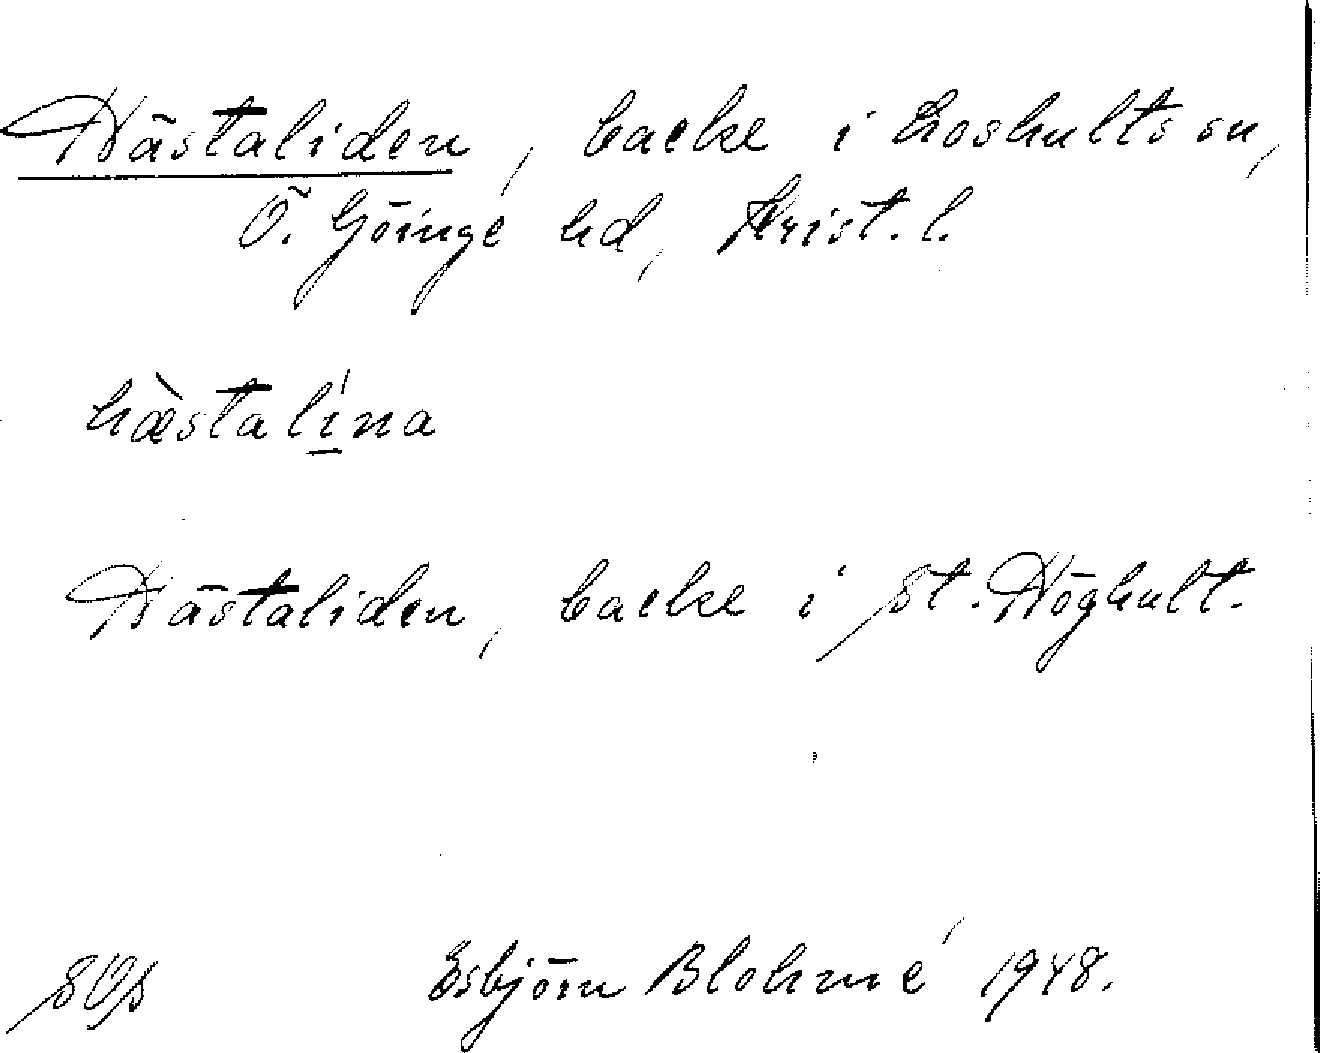 Hästaliden, backe i Loshults sn,
Ö. Göinge hd, Krist. l.
hæ̀stalína
Hästaliden, backe i St. Höghult.
SOS Esbjörn Blohmé 1948.